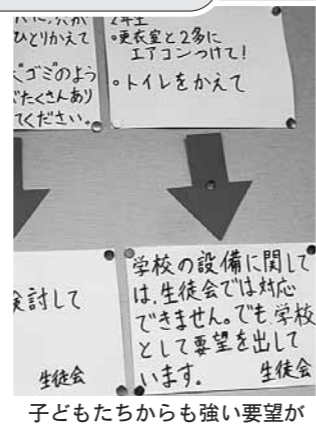 ひとりかえて
ゴミのよう
たくさんあり
てください。
2年生
・更衣室と2多に
エアコンつけて!
・トイレをかえて
検討して
生徒会
学校の設備に関して
は、生徒会では対応
できません。でも、学校
として要望を出して
います。 生徒会
子どもたちからも強い要望が